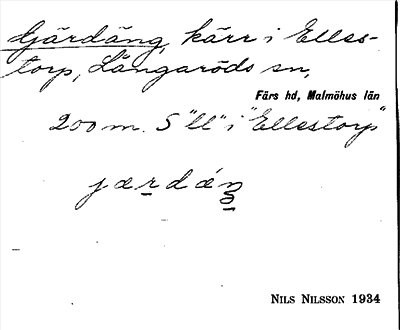 Gjärdäng, kärr i Elles-
torp, Långaröds sn,
Färs hd, Malmöhus län
200 m. S "ll" i "Ellestorp"
jærdáŋ
NILS NILSSON 1934